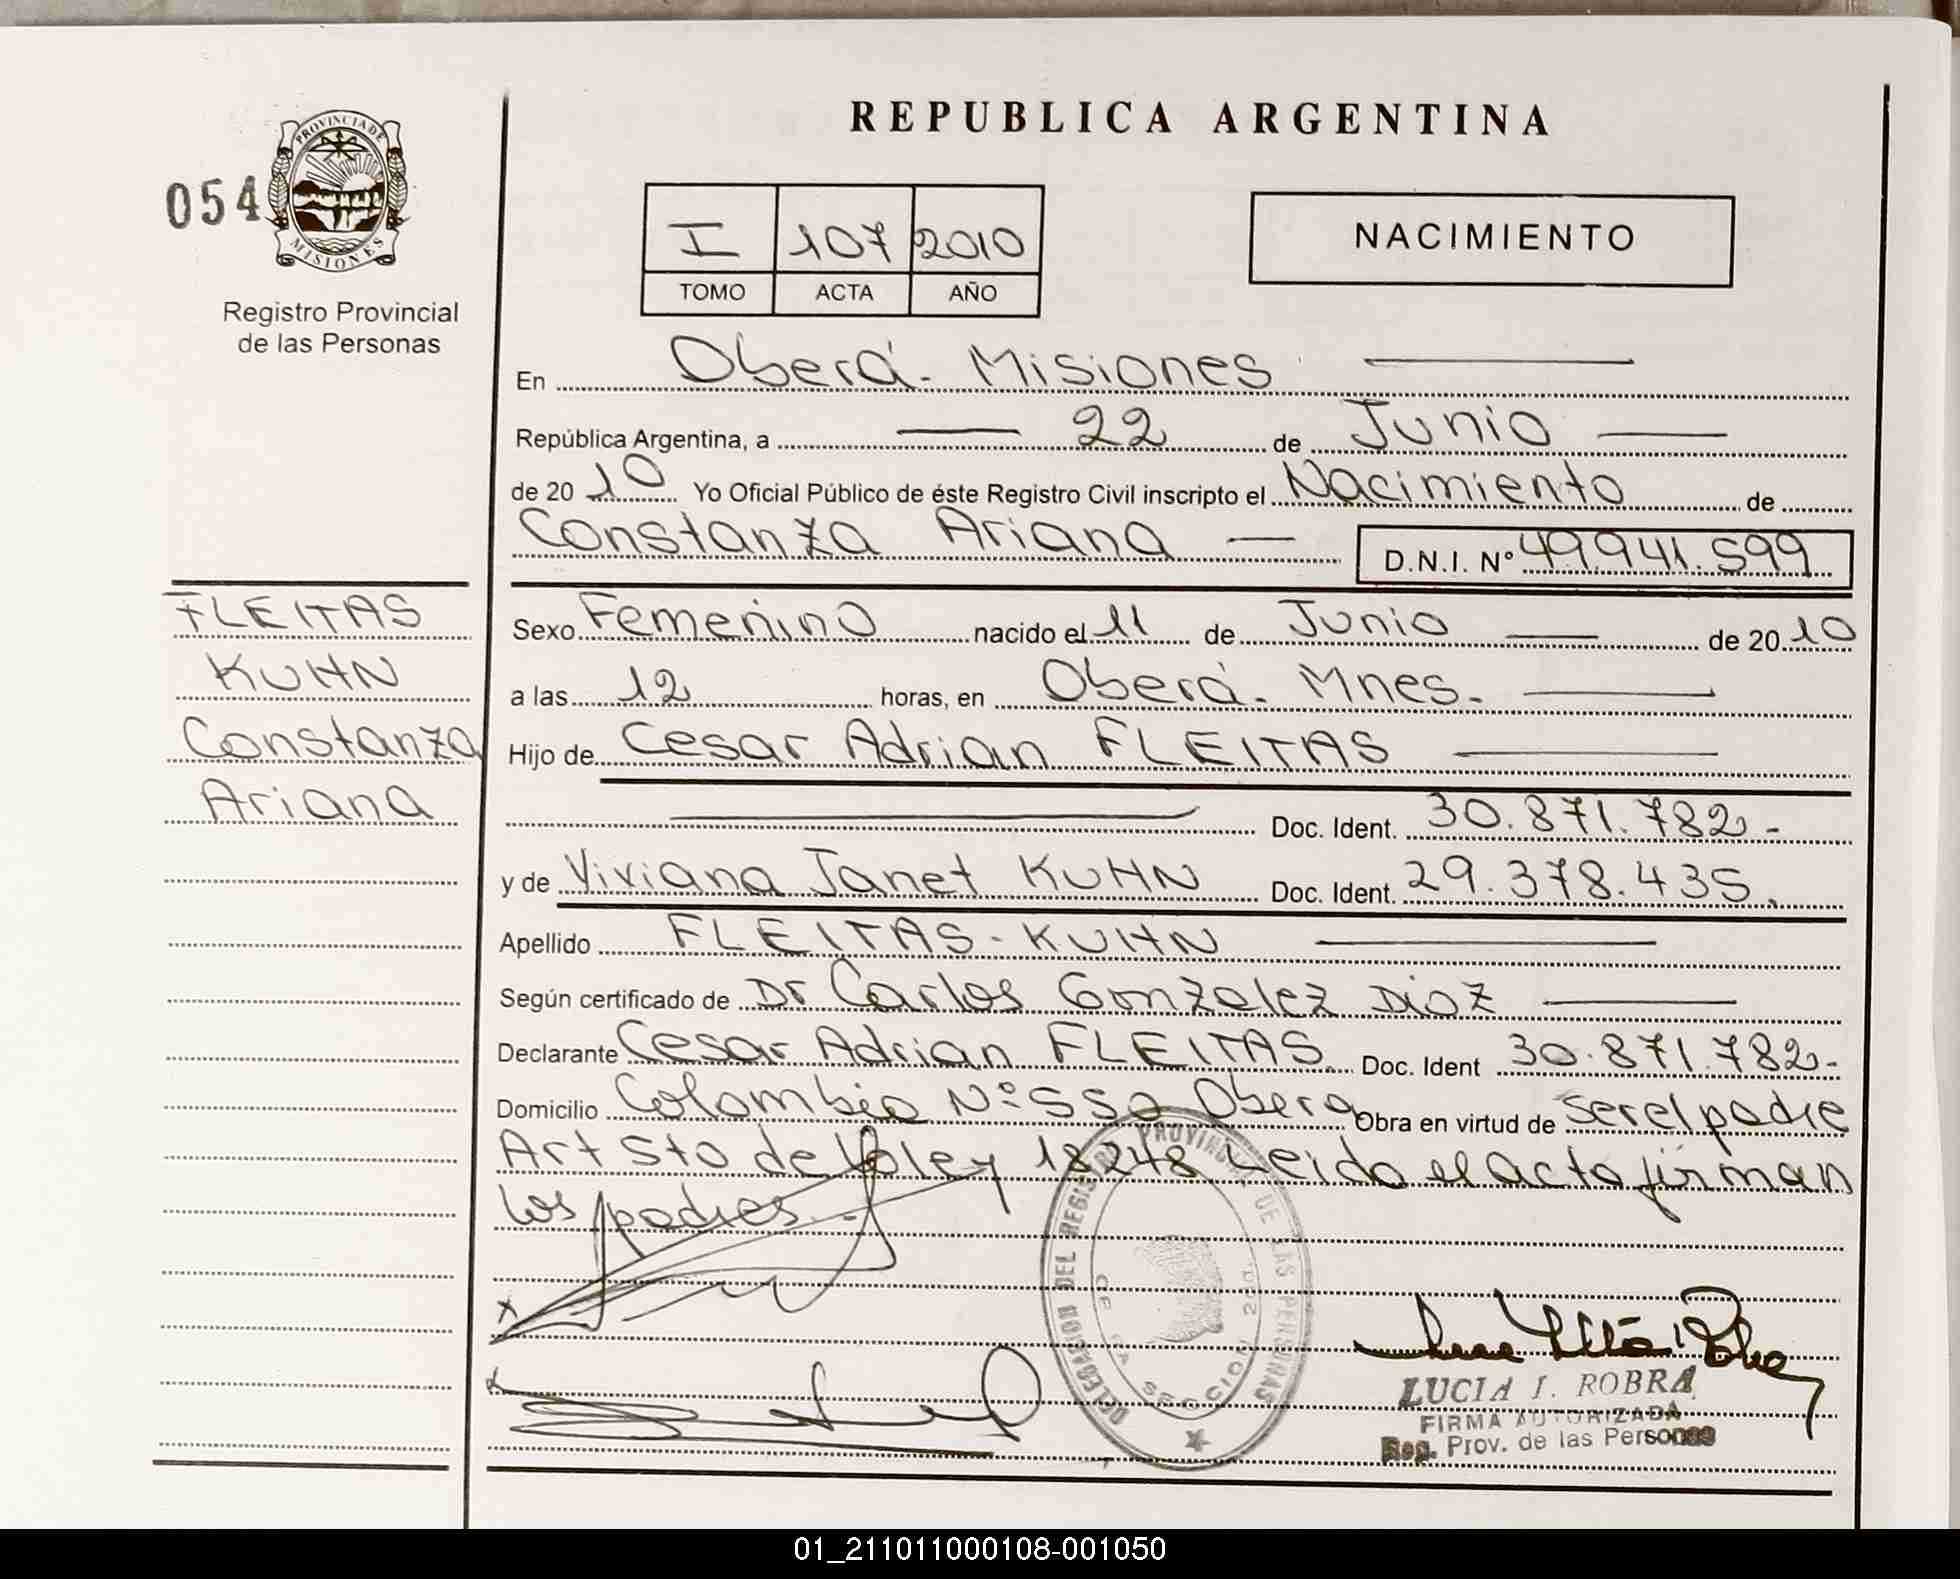 REPUBLICA ARGENTINA
054
PROVINCIA DE
MISIONES
Registro Provincial
de las Personas
I 107 2010
TOMO ACTA AÑO
NACIMIENTO
En Oberá - Misiones
República Argentina, a 22 de Junio
de 20 10 Yo Oficial Público de éste Registro Civil inscripto el Nacimiento de
Constanza Ariana D.N.I. N° 49.941.599
FLEITAS
KUHN
Constanza
Ariana
Sexo Femenino nacido el 11 de Junio de 20 10
a las 12 horas, en Oberá - Mnes.
Hijo de Cesar Adrian FLEITAS
Doc. Ident. 30.871.782-
y de Viviana Janet KUHN Doc. Ident. 29.378.435.
Apellido FLEITAS - KUHN
Según certificado de Dr Carlos Gonzalez Diaz
Declarante Cesar Adrian FLEITAS. Doc. Ident 30.871.782-
Domicilio Colombia N° 550 Obera Obra en virtud de ser el padre
Art 5to de la ley 18248 Leido el acta firman
los padres.-
DELEGACION DEL REGISTRO PROVINCIAL DE LAS PERSONAS
SECCION 2da.
LUCIA I. ROBRA
FIRMA AUTORIZADA
Reg. Prov. de las Personas
01_211011000108-001050